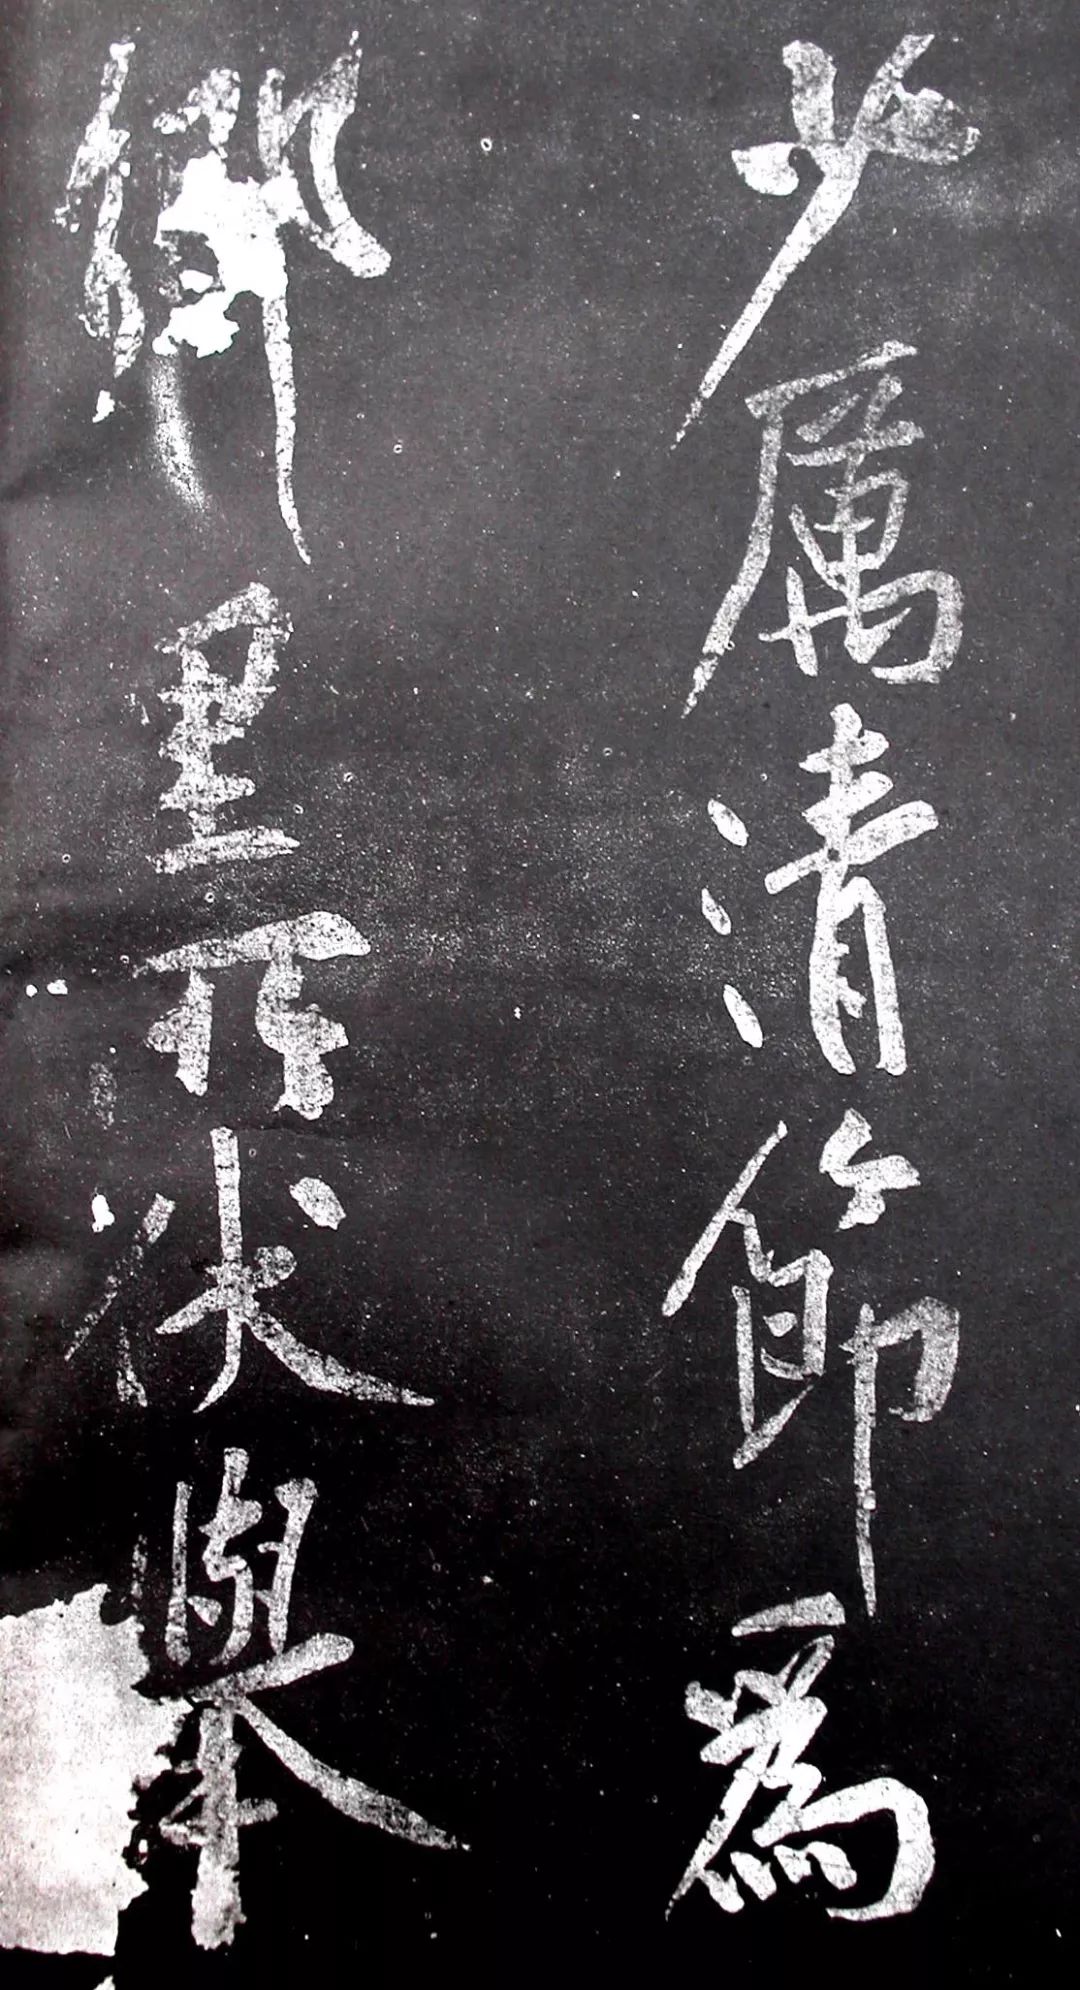 少厲清節為
鄉里所伏舉